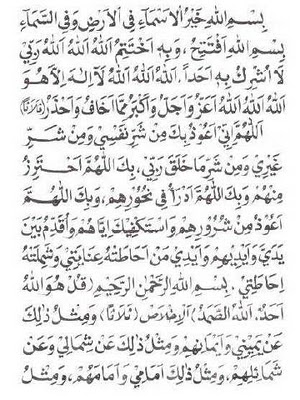 بِسْمِ اللهِ خَيْرُ الْاَسْمَاءِ فِى الْاَرْضِ وَفِى السَّمَاءِ
بِسْمِ اللهِ اَفْتَتِحُ، وَبِهِ اَخْتَتِمُ اَللهُ اَللهُ اَللهُ رَبِّيْ
لَا اُشْرِكُ بِهِ اَحَداً. اَللهُ اَللهُ اَللهُ لَآ اِلٰهَ اِلَّا هُوَ
اَللهُ اَللهُ اَللهُ اَعَزُّ وَاَجَلُّ وَاَكْبَرُ مِمَّا اَخَافُ وَاَحْذَرُ (ثَلَاثًا)
اَللّٰهُمَّ اِنِّيْ اَعُوْذُ بِكَ مِنْ شَرِّ نَفْسِيْ وَمِنْ شَرِّ
غَيْرِيْ وَمِنْ شَرِّ مَا خَلَقَ رَبِّيْ، بِكَ اللّٰهُمَّ اَحْتَرِزُ
مِنْهُمْ وَبِكَ اللّٰهُمَّ اَدْرَأُ فِيْ نُحُوْرِهِمْ، وَبِكَ اللّٰهُمَّ
اَعُوْذُ مِنْ شُرُوْرِهِمْ وَاَسْتَكْفِيْكَ اِيَّاهُمْ وَاُقَدِّمُ بَيْنَ
يَدَيَّ وَاَيْدِيْهِمْ وَاَيْدِيْ مَنْ اَحَاطَتْهُ عِنَايَتِيْ وَشَمِلَتْهُ
اِحَاطَتِيْ. بِسْمِ اللهِ الرَّحْمٰنِ الرَّحِيْمِ (قُلْ هُوَ اللهُ
اَحَدٌ. اَللهُ الصَّمَدُ) اَلْاِخْلَاصْ (ثَلَاثًا) وَمِثْلُ ذٰلِكَ
عَنْ يَمِيْنِيْ وَاَيْمَانِهِمْ وَمِثْلُ ذٰلِكَ عَنْ شِمَالِيْ وَعَنْ
شَمَائِلِهِمْ، وَمِثْلُ ذٰلِكَ اَمَامِيْ وَاَمَامَهُمْ، وَمِثْلُ